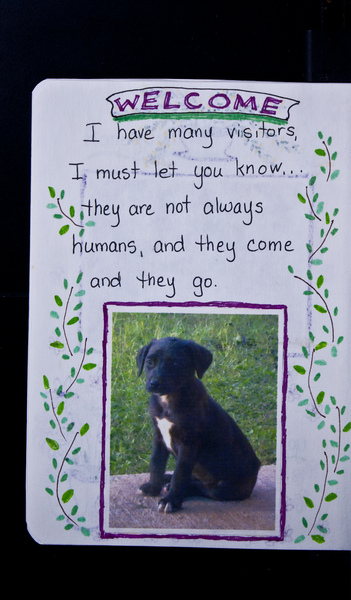 WELCOME
I have many visitors,
I must let you know...
they are not always
humans, and they come
and they go.